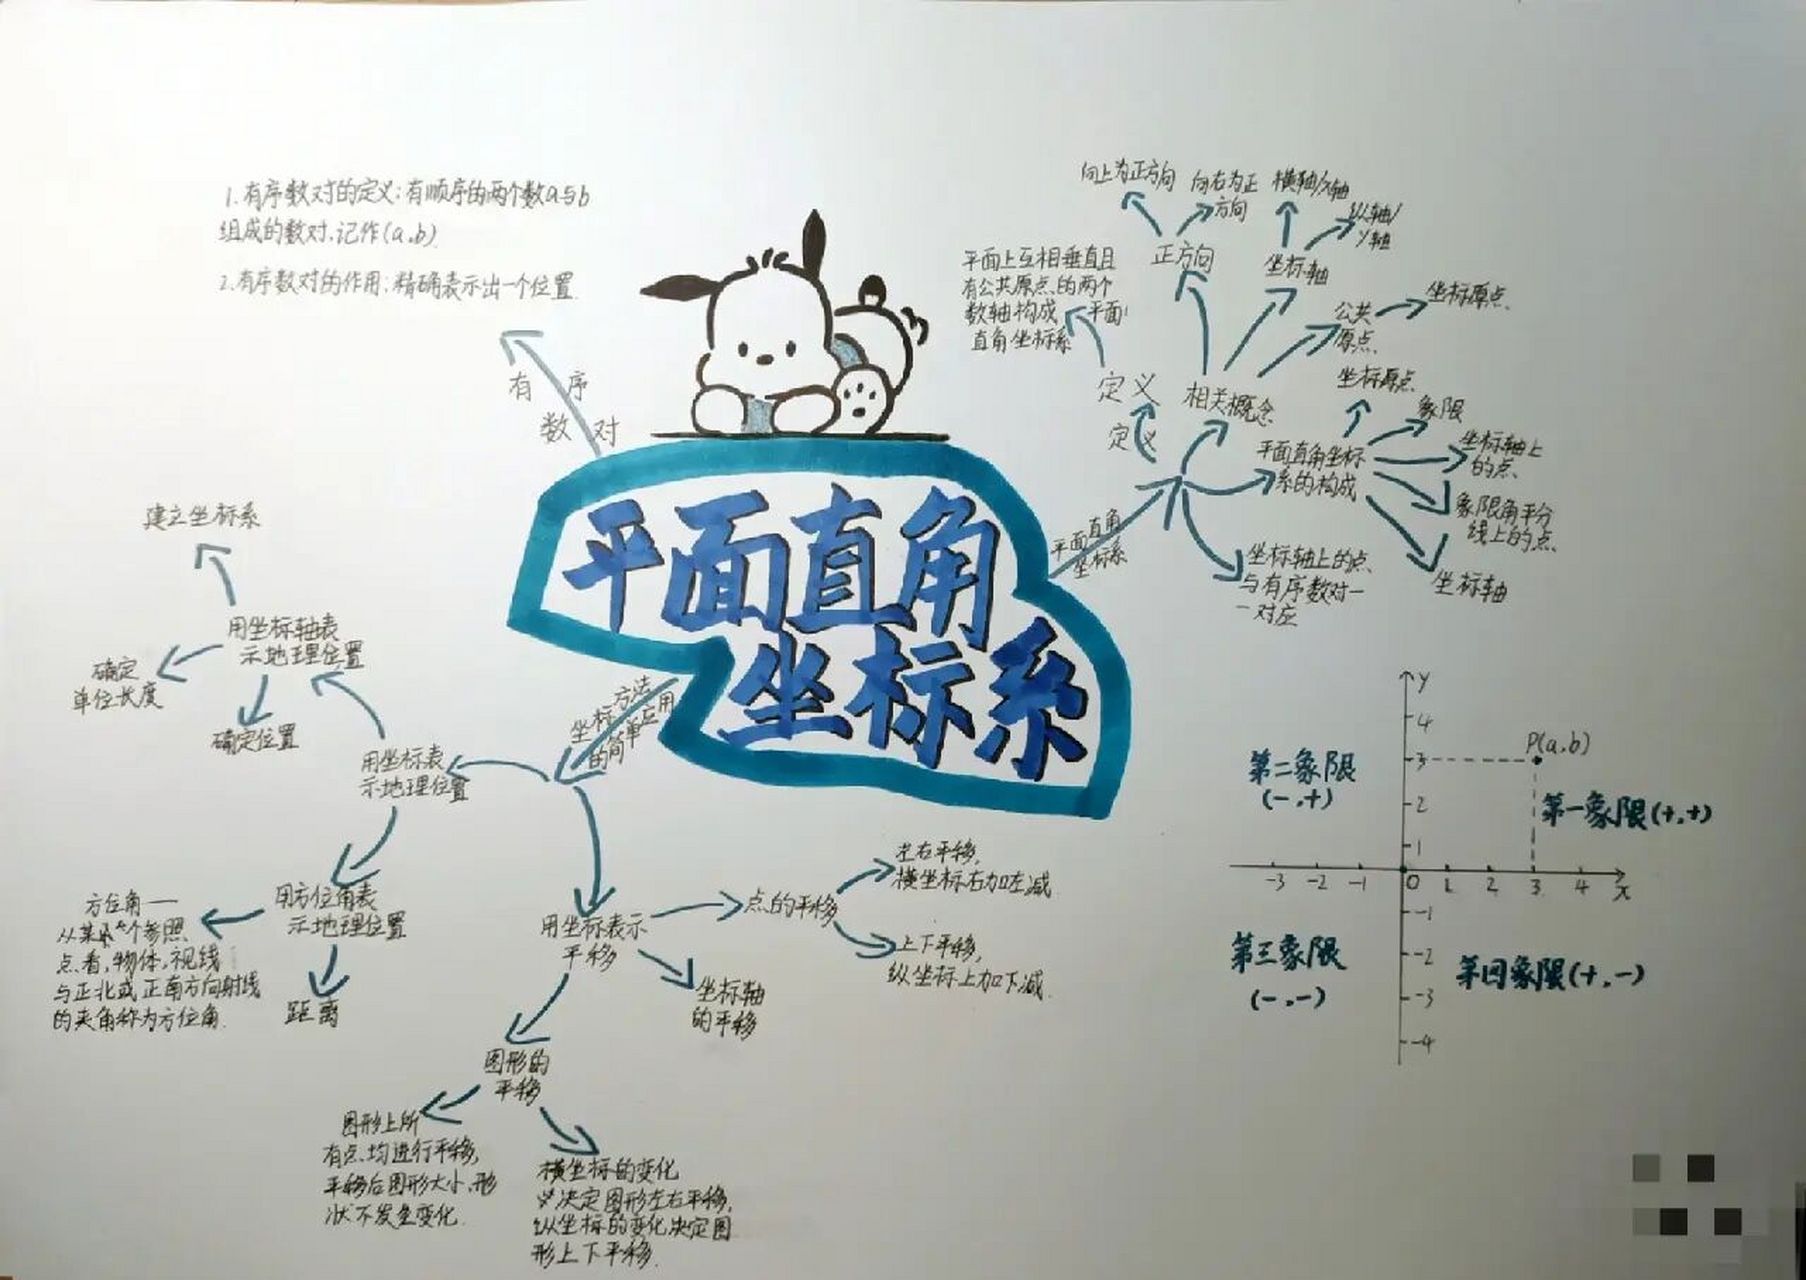 1.有序数对的定义:有顺序的两个数a与b
组成的数对,记作(a,b)
2.有序数对的作用:精确表示出一个位置
有序
数对
平面直角
坐标系
平面直角
坐标系
定义
定义
平面上互相垂直且
有公共原点的两个
数轴构成平面
直角坐标系
相关概念
正方向
向上为正方向
向右为正
方向
坐标轴
横轴/x轴
纵轴/
y轴
公共
原点
坐标原点
平面直角坐标
系的构成
坐标原点
象限
坐标轴上
的点
象限角平分
线上的点
坐标轴
坐标轴上的点
与有序数对一
一对应
坐标方法
的简单应用
用坐标表
示地理位置
用坐标轴表
示地理位置
建立坐标系
确定
单位长度
确定位置
用方位角表
示地理位置
方位角——
点看,物体,视线
与正北或正南方向射线
的夹角称为方位角
距离
用坐标表示
平移
点的平移
左右平移,
横坐标右加左减
上下平移,
纵坐标上加下减
坐标轴
的平移
图形的
平移
图形上所
有点均进行平移,
平移后图形大小、形
状不发生变化
横坐标的变化
决定图形左右平移,
纵坐标的变化决定图
形上下平移
y
4
3
2
1
P(a,b)
第二象限
(-,+)
第一象限(+,+)
-3 -2 -1 0 1 2 3 4 x
-1
-2
-3
-4
第三象限
(-,-)
第四象限(+,-)